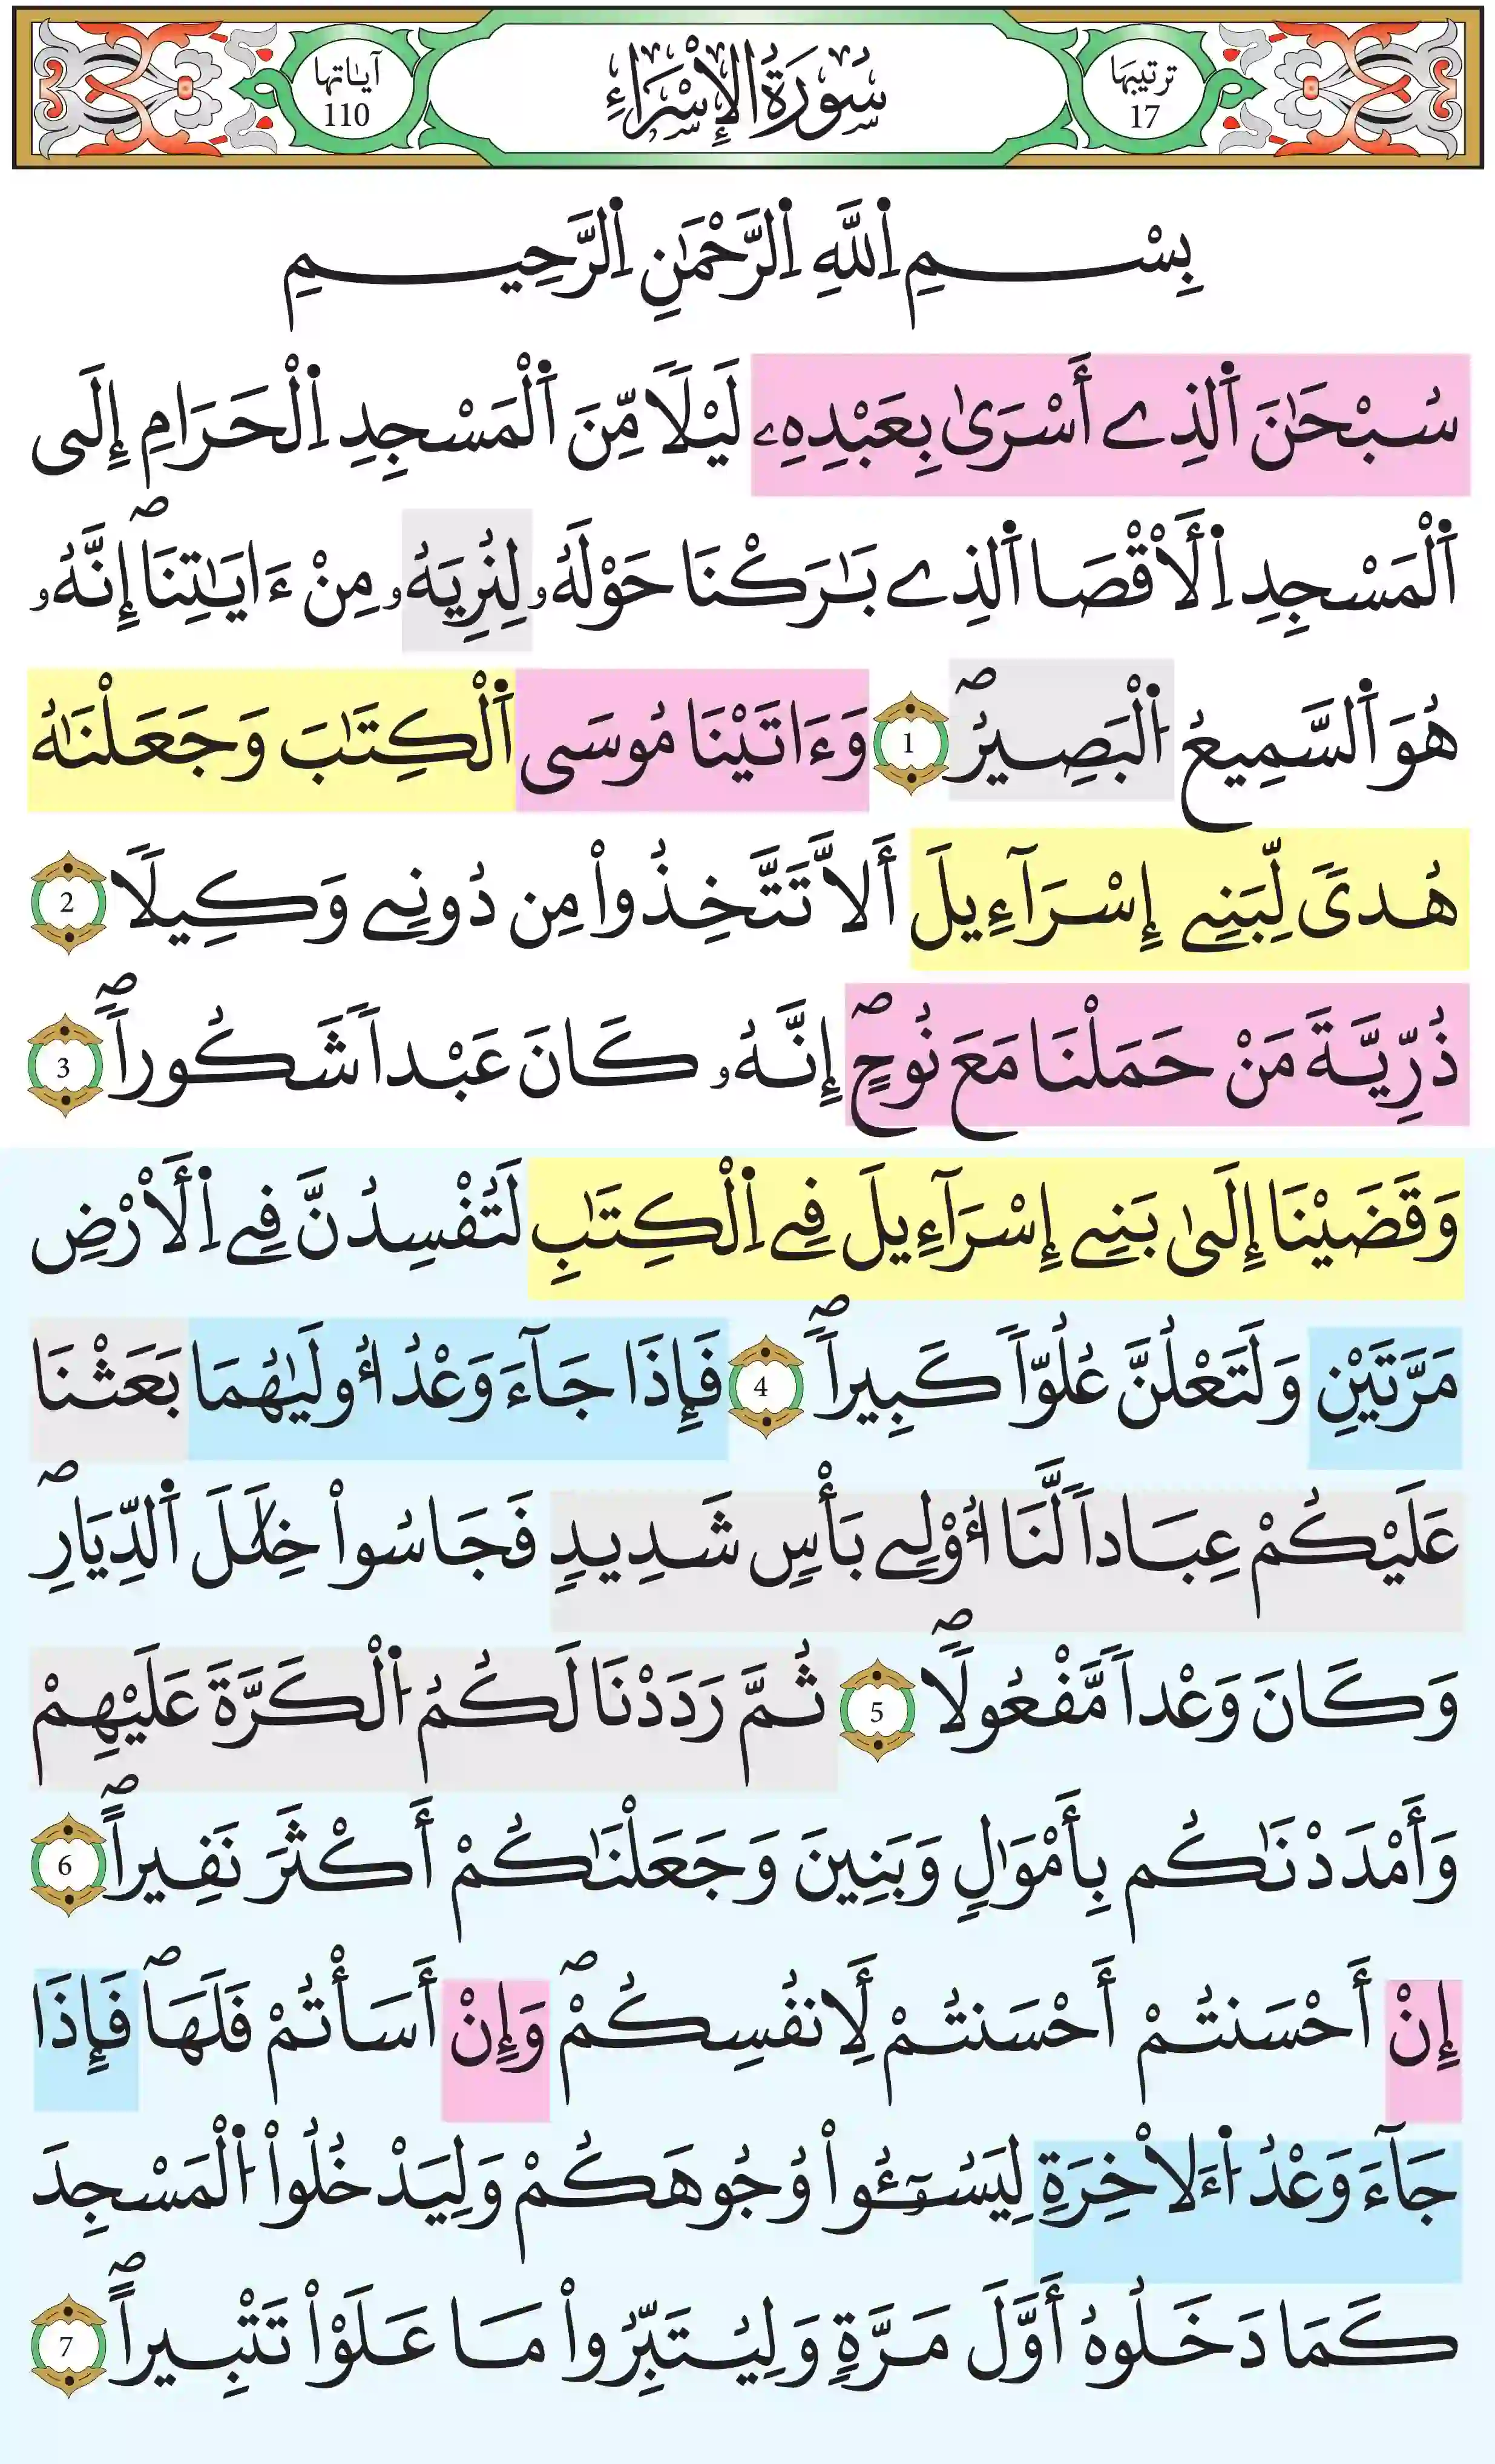 ترتيبها
17
سُورَةُ الإِسْرَاءِ
آياتها
110
بِسْمِ اِ۬للَّهِ اِ۬لرَّحْمَٰنِ اِ۬لرَّحِيمِ
سُبْحَٰنَ اَ۬لذِے أَسْرَىٰ بِعَبْدِهِۦ لَيْلاٗ مِّنَ اَ۬لْمَسْجِدِ اِ۬لْحَرَامِ إِلَى
اَ۬لْمَسْجِدِ اِ۬لَاقْصَا اَ۬لذِے بَٰرَكْنَا حَوْلَهُۥ لِنُرِيَهُۥ مِنْ ءَايَٰتِنَاۖ إِنَّهُۥ
هُوَ اَ۬لسَّمِيعُ اُ۬لْبَصِيرُۖ 1 وَءَاتَيْنَا مُوسَى اَ۬لْكِتَٰبَ وَجَعَلْنَٰهُ
هُدىٗ لِّبَنِے إِسْرَآءِيلَ أَلَّا تَتَّخِذُواْ مِن دُونِے وَكِيلاٗ 2
ذُرِّيَّةَ مَنْ حَمَلْنَا مَعَ نُوحٍۖ إِنَّهُۥ كَانَ عَبْداٗ شَكُوراٗۖ 3
وَقَضَيْنَا إِلَىٰ بَنِے إِسْرَآءِيلَ فِے اِ۬لْكِتَٰبِ لَتُفْسِدُنَّ فِے اِ۬لَارْضِ
مَرَّتَيْنِ وَلَتَعْلُنَّ عُلُوّاٗ كَبِيراٗۖ 4 فَإِذَا جَآءَ وَعْدُ أُولَيٰهُمَا بَعَثْنَا
عَلَيْكُمْ عِبَاداٗ لَّنَا أُوْلِے بَأْسٖ شَدِيدٖ فَجَاسُواْ خِلَٰلَ اَ۬لدِّيَارِۖ
وَكَانَ وَعْداٗ مَّفْعُولاٗۖ 5 ثُمَّ رَدَدْنَا لَكُمُ اُ۬لْكَرَّةَ عَلَيْهِمْ
وَأَمْدَدْنَٰكُم بِأَمْوَٰلٖ وَبَنِينَ وَجَعَلْنَٰكُمْ أَكْثَرَ نَفِيراٗۖ 6
إِنْ أَحْسَنتُمْ أَحْسَنتُمْ لِأَنفُسِكُمْۖ وَإِنْ أَسَأْتُمْ فَلَهَاۖ فَإِذَا
جَآءَ وَعْدُ اُ۬ءَلاْخِرَةِ لِيَسُـُٔواْ وُجُوهَكُمْ وَلِيَدْخُلُواْ اُ۬لْمَسْجِدَ
كَمَا دَخَلُوهُ أَوَّلَ مَرَّةٖ وَلِيُتَبِّرُواْ مَا عَلَوْاْ تَتْبِيراٗۖ 7